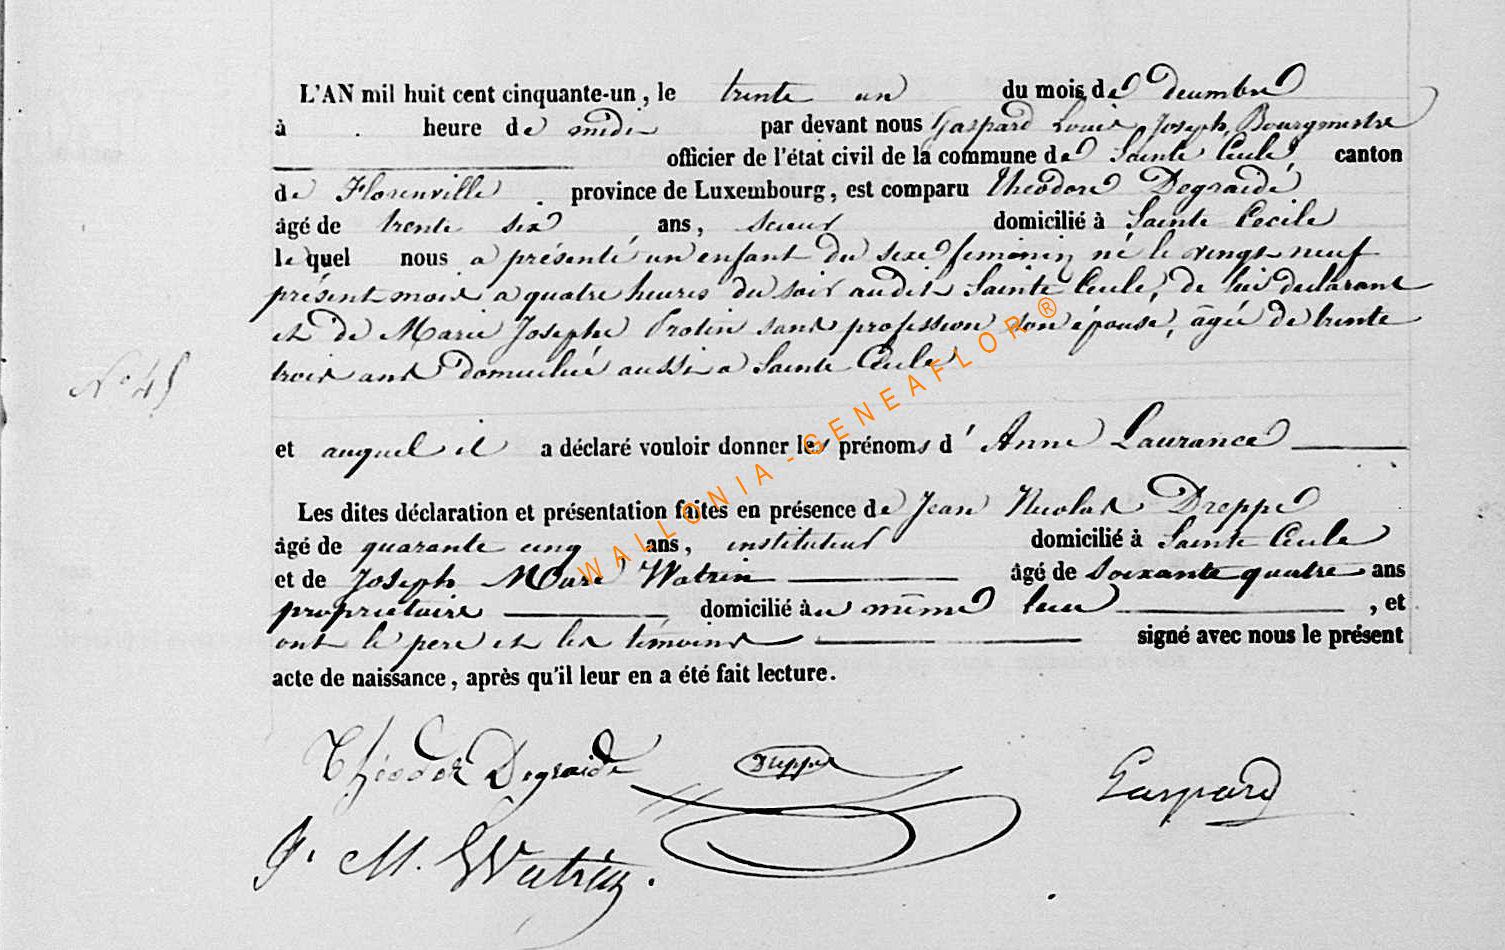 L'AN mil huit cent cinquante-un, le trente un du mois de decembre
à heure de midi par devant nous Gaspard Louis Joseph, Bourgmestre
officier de l'état civil de la commune de Sainte Cecile, canton
de Florenville province de Luxembourg, est comparu Théodore Degraide
âgé de trente six ans, scieur domicilié à Sainte Cecile
le quel nous a présenté un enfant du sexe feminin né le vingt neuf
présent mois a quatre heures du soir audit Sainte Cecile, de lui declarant
et de Marie Josephe Protin sans profession son épouse, âgée de trente
trois ans domiciliée aussi a Sainte Cecile
N° 45
et auquel il a déclaré vouloir donner les prénoms d' Anne Laurance
Les dites déclaration et présentation faites en présence de Jean Nicolas Dreppe
âgé de quarante cinq ans, instituteur domicilié à Sainte Cecile
et de Joseph Marie Watrin âgé de soixante quatre ans
propriétaire domicilié au même lieu, et
ont le pere et les témoins signé avec nous le présent
acte de naissance, après qu'il leur en a été fait lecture.
Théodor Degraide Dreppe Gaspard
J. M. Watrin.
WALLONIA-GENEAFLOR ®